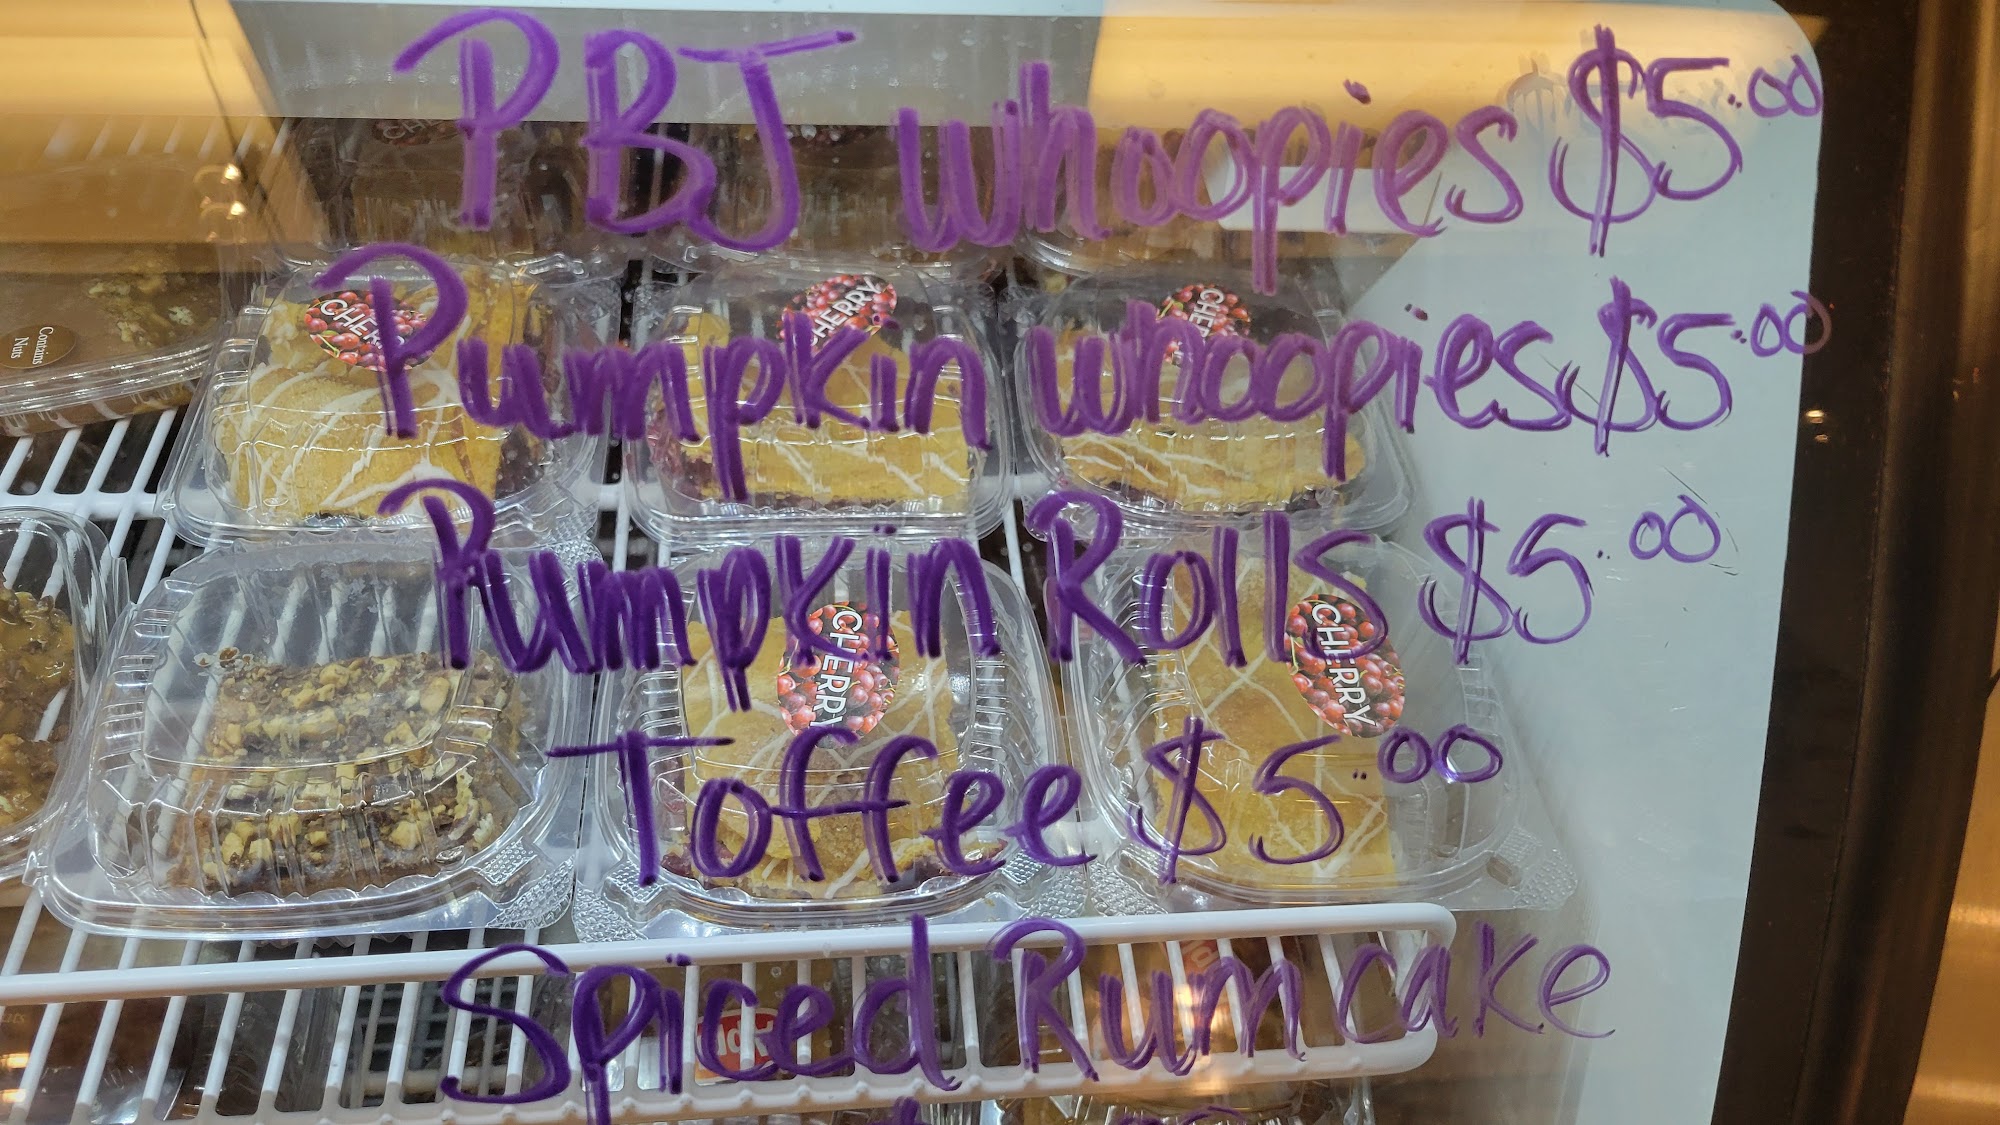 PBJ whoopies $5.00
Pumpkin whoopies $5.00
Pumpkin Rolls $5.00
Toffee $5.00
Spiced Rum cake
CHERRY
CHERRY
CHERRY
CHERRY
CHERRY
Contains
Nuts